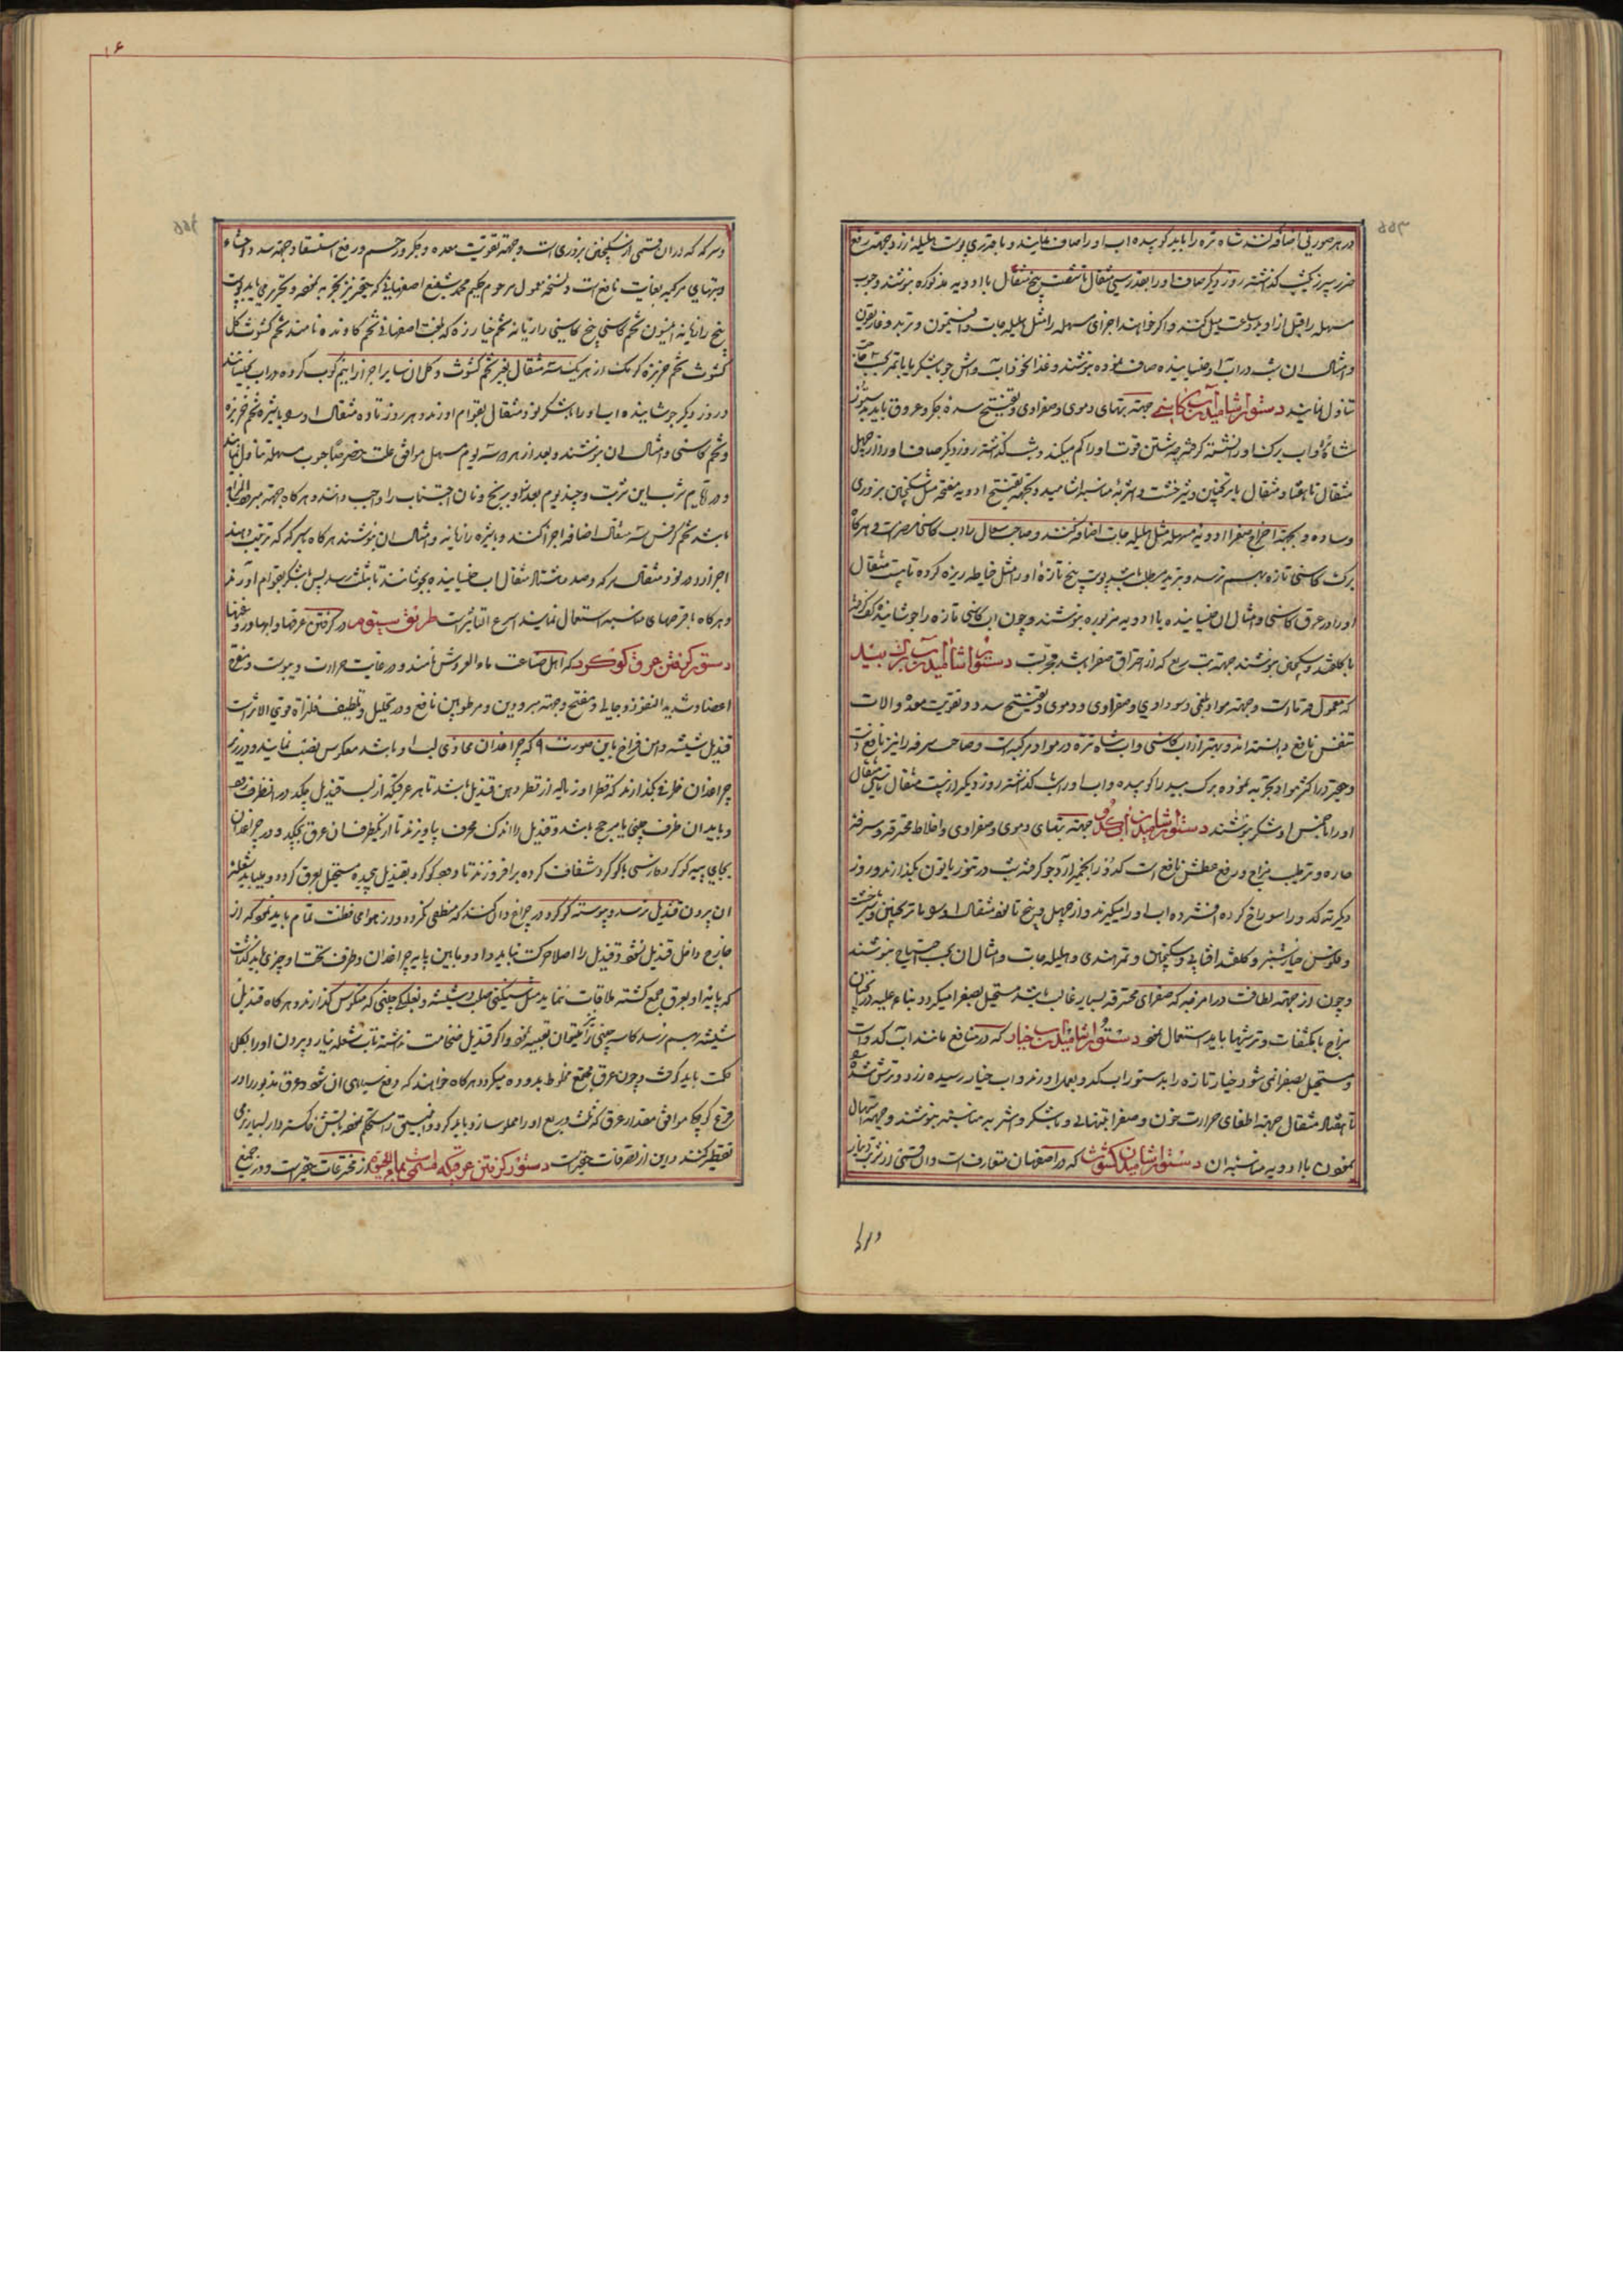 در هر صورتی اضافه کنند شاه تره را باید کوبیده آب او را صاف نمایند و با قدری پوست هلیله زرد جهته رفع
ضرر سپرز یکشب گذاشته روز دیگر صاف او را بقدر سی مثقال تا شصت پنج مثقال با ادویه مذکوره بنوشند و حبوب
مسهله را قبل از او بدو ساعت میل کنند و اگر خواهند اجزای مسهله را مثل هلیله جات و افتیمون و تربد و غاریقون
و امثال ان شب در آب او خیسانیده صاف نموده بنوشند و غذا نخود آب و آش جو با شکر یا با تمر
تناول نمایند دستور آشامیدن آب کاسنی جهته تبهای دموی و صفراوی و تفتیح سده جکر و عروق باید بدستور
شاتره آب برک او را نشسته گرفت چه شستن قوت او را کم میکند و شب گذاشته روز دیگر صاف او را از چهل
مثقال تا هفتاد مثقال با ترنجبین و شیرخشت و اشربه مناسبه آشامید و بجهته تفتیح ادویه مفتحه مثل سکنجبین بزوری
و ساده و بجهته اخراج صفرا ادویه مسهله مثل هلیله جات اضافه کنند و صاحب سعال را آب کاسنی مضر است و هرگاه
برک کاسنی تازه بهم نرسد و تبرید مطلب باشد پوست بیخ تازه او را مثل خیاطه ریزه کرده تا بیست مثقال
او را در عرق کاسنی و امثال ان خیسانیده با ادویه مزبوره بنوشند و چون آب کاسنی تازه را جوشانیده کف گرفته
با گلقند و سکنجبین بنوشند جهته تب ربع که از احتراق صفرا باشد مجربست دستور آشامیدن آب برک بید
که معمول قدماست و جهته مواد بلغمی و سوداوی و صفراوی و دموی و تفتیح سدد و تقویت معده و الات
تنفس نافع دانسته اند و بهتر از آب کاسنی و آب شاه تره در مواد مرکبه است و صاحب سرفه را نیز نافع است
و حقیر در اکثر مواد تجربه نموده برک بید را کوبیده و آب او را شب گذاشته روز دیگر از بیست مثقال تا سی مثقال
او را با جنس او شکر بنوشند دستور آشامیدن آب کدو جهته تبهای دموی و صفراوی و اخلاط محترقه و سرفه
حاره و ترطیب مزاج و رفع عطش نافع است کدو را بخمیر آرد جو گرفته شب در تنور یا تون بگذارند و روز
دیگر ته کدو را سوراخ کرده افشرده آب او را میگیرند و از چهل و پنج تا نود مثقال او را با ترنجبین و شیرخشت
و فلوس خیارشنبر و گلقند افتابی و سکنجبین و تمر هندی و هلیله جات و امثال ان بحسب احتیاج بنوشند
و چون از جهته لطافت در امزجه که صفرای محترقه بسیار غالب باشد مستحیل بصفرا میگردد بناء علیه در چنان
مزاج با مکثفات و ترشیها باید استعمال نمود دستور آشامیدن آب خیار که در منافع مانند آب کدو است
و مستحیل بصفرا نمی شود خیار تازه را بدستور آب کدو بعمل آورند و آب خیار رسیده زرد و ترش شده
تا هفتاد مثقال جهته اطفای حرارت خون و صفرا بتنهائی و با شکر و اشربه مناسبه بنوشند و جهته اسهال
بمعجون با ادویه مناسبه ان دستور آشامیدن کشوث که در اصفهان متعارف است و ان قسمی از شربت
دراز
و سرکه که در ان قسمی از سکنجبین بزوری است و جهته تقویت معده و جکر و رحم و رفع استسقا و جهته سدد احشاء
و تبهای مرکبه بغایت نافع است و نسخه معمول مرحوم حکیم محمد شفیع اصفهانی که حقیر نیز تجربه نموده و تحریر می یابد پوست
بیخ رازیانه انیسون تخم کاسنی بیخ کاسنی رازیانه تخم خیارزه که بلغت اصفهانی تخم کاونده نامند تخم کشوث گل
کشوث تخم خربزه کرمک از هر یک سه مثقال بغیر تخم کشوث و گل ان سایر اجزا را نیم کوب کرده در آب بخیسانند
و روز دیگر جوشانیده آب او را با شکر نود مثقال بقوام آورند و هر روز تا ده مثقال او را با شیره تخم خربزه
و تخم کاسنی و امثال ان بنوشند و بعد از هر سه یوم مسهل موافق علت خصوصا حبوب مسهله تناول نمایند
و در ایام شرب این شربت و چند یوم بعد از او برنج و نان اجتناب را واجب دانند و هرگاه جهته
باشد تخم کرفس سه مثقال اضافه اجزا کنند و با شیره رازیانه و امثال ان بنوشند هرگاه بسرکه ترتیب دهند
اجزا را در نود مثقال سرکه و صد و هشتاد مثقال آب خیسانیده بجوشانند تا بثلث رسد پس با شکر بقوام آورند
و هرگاه با قرصهای مناسبه استعمال نمایند اسرع التاثیر است طریق سیوم در گرفتن عرقها و آبها و روغنها
دستور گرفتن عرق گوگرد که اهل صناعت ماء العروش نامند و در غایت حرارت و یبوست و مقوی
اعضا و شدید النفوذ و جالی و مفتح و جهته مبرودین و مرطوبین نافع و در تحلیل و تلطیف فلزات قوی الاثر است
قندیل شیشه دهن فراخ باین صورت ٩ که چراغدان محاذی لب او باشد معکوس نصب نمایند و در زیر
چراغدان ظرفی بگذارند که قطر او زیاده از قطر دهن قندیل باشد تا هر عرقیکه از لب قندیل چکد در انظرف جمع
و باید ان ظرف چینی یا مرجج باشد و قندیل را اندک محرف بیاویزند تا از یکطرف ان عرق بچکد و در چراغدان
بجای پیه گوگرد فارسی یا گوگرد شفاف کرده برافروزند تا دود گوگرد بقندیل پیچیده مستحیل بعرق گردد و نباید شعله
ان بیرون قندیل رسد و پیوسته گوگرد در چراغدان کنند که منطفی نگردد و از هوا محافظت تمام باید نمود که از
خارج داخل قندیل نشود و قندیل را اصلا حرکت نباید داد و ما بین پایه چراغدان و ظرف تحت او چیزی باید گذاشت
که پایه او بعرق جمع گشته ملاقات ننماید مثل سنگی صلب و شیشه و نعلبکی چینی که منکوس گذارند و هرگاه قندیل
شیشه بهم نرسد کاسه چینی را میتوان تعبیه نمود و اگر قندیل ضخامت نداشته تاب شعله نیارد بیرون او را بگل
حکمت باید گرفت و چون عرق مجتمع مخلوط بدوده میگردد هرگاه خواهند که رفع سیاهی ان شود عرق مذبور را در
قرع کوچک موافق مقدار عرق که ثلث و ربع او را مملو سازد باید کرد و انبیق را مستحکم نموده بآتش خاکستر دار بسیار نرمی
تقطیر کنند و این از تصرفات حقیر است دستور گرفتن عرقیکه مسمی بماء الحیوة از مخترعات حقیر است و در جمیع